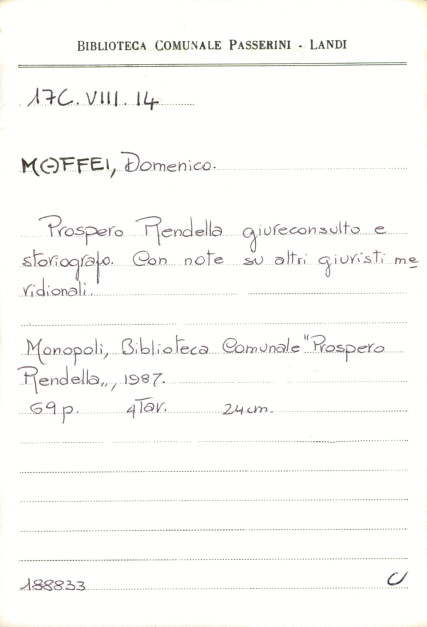 BIBLIOTECA COMUNALE PASSERINI - LANDI
17C. VIII. 14
MAFFEI, Domenico.
Prospero Rendella giureconsulto e
storiografo. Con note su altri giuristi me
ridionali.
Monopoli, Biblioteca Comunale "Prospero
Rendella„, 1987.
69 p. 4 Tav. 24 cm.
188833
U